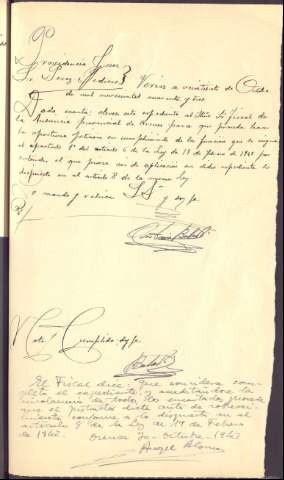 Providencia Juez
Sr. Perez Medina } Verin a veintisiete de Octubre
de mil novecientos cuarenta y dos.
Dada cuenta; elevese este expediente al Iltmo Sr Fiscal de
la Audiencia provincial de Orense para que pueda hacer
la oportuna peticion en cumplimiento de la funcion que se
el apartado 1º del articulo 6 de la Ley de 19 de Febrero de 1942 por
entender el que provee ser de aplicacion en dicho expediente lo
dispuesto en el articulo 8 de la misma Ley
Lo mando y rubrica S.Sª y doy fe
Nota/ Cumplido doy fe
El Fiscal dice: Que considera com-
pleto el expediente y acreditándose la
insolvencia de todos los encartados procede
que el Juzgado dicte auto de sobresei-
miento conforme a lo dispuesto en el
artículo 8º de la Ley de 19 de Febrero
de 1942.
Orense 30 Octubre 1942
Angel